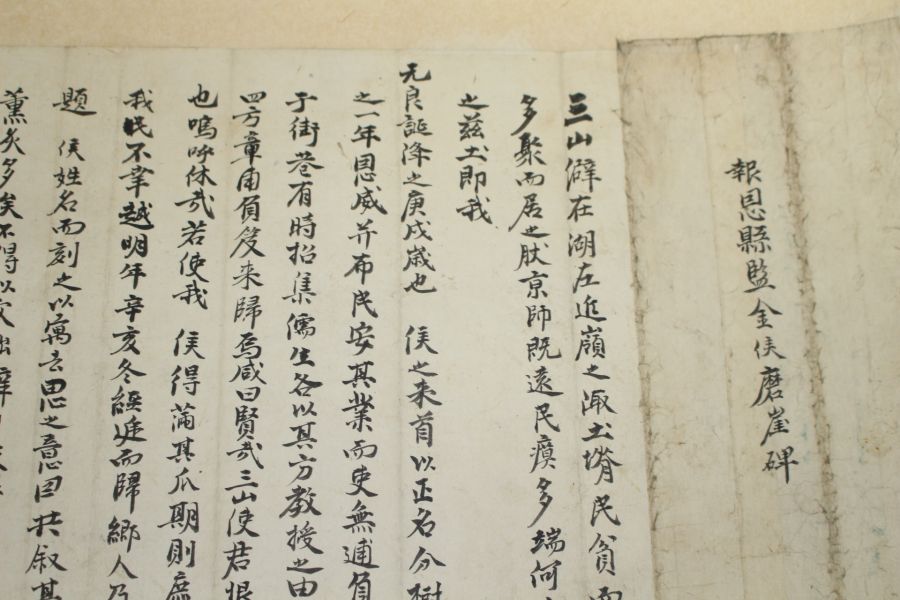 報恩縣監金侯磨崖碑
三山僻在湖左近嶺之陬土塉民貧而
多聚而居之肰京師既遠民瘼多端何
之玆土即我
元良誕降之庚戌歲也 侯之来首以正名分樹
之一年恩威并布民安其業而吏無逋負
于街巷有時招集儒生各以其方教授之由
四方章甫負笈来歸焉咸曰賢哉三山使君恨
也嗚呼休哉若使我 侯得滿其瓜期則庶
我民不幸越明年辛亥冬經遞而歸鄉人乃
題 侯姓名而刻之以寓去思之意因共叙其
薰炙多矣不得以文出